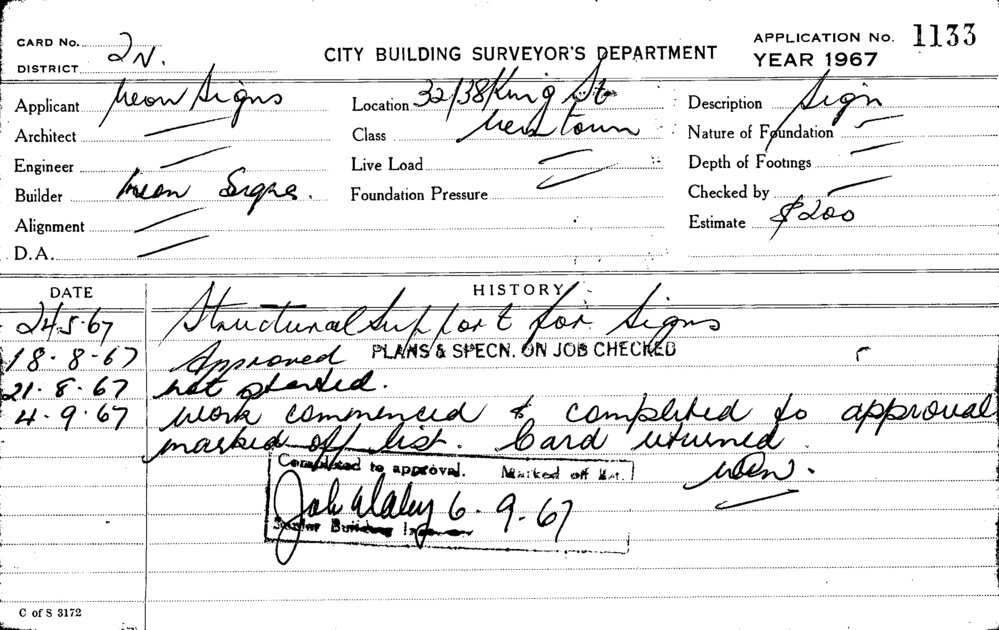 CARD No. 2N.
DISTRICT
CITY BUILDING SURVEYOR'S DEPARTMENT
APPLICATION No. 1133
YEAR 1967
Applicant Neon Signs
Architect
Engineer
Builder Neon Signs.
Alignment
D.A.
Location 32/38 King St
Class Newtown
Live Load
Foundation Pressure
Description Sign
Nature of Foundation
Depth of Footings
Checked by
Estimate $200
DATE HISTORY
24.5.67 Structural Support for Signs
18.8.67 Approved PLANS & SPECN. ON JOB CHECKED
21.8.67 not started.
4.9.67 work commenced & completed to approval
marked off list. Card returned
Completed to approval. Marked off list.
6.9.67
Senior Building Inspector
C of S 3172